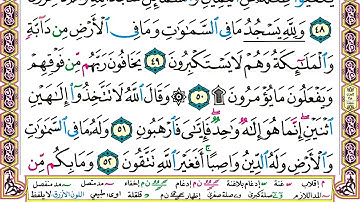 وَلِلَّهِ يَسْجُدُ مَا فِى ٱلسَّمَٰوَٰتِ وَمَا فِى ٱلْأَرْضِ مِن دَآبَّةٍ ٤٨
وَٱلْمَلَٰٓئِكَةُ وَهُمْ لَا يَسْتَكْبِرُونَ ٤٩ يَخَافُونَ رَبَّهُم مِّن فَوْقِهِمْ
وَيَفْعَلُونَ مَا يُؤْمَرُونَ ۩ ٥٠ ۞ وَقَالَ ٱللَّهُ لَا تَتَّخِذُوٓا۟ إِلَٰهَيْنِ
ٱثْنَيْنِ إِنَّمَا هُوَ إِلَٰهٌ وَٰحِدٌ فَإِيَّٰىَ فَٱرْهَبُونِ ٥١ وَلَهُۥ مَا فِى ٱلسَّمَٰوَٰتِ
وَٱلْأَرْضِ وَلَهُ ٱلدِّينُ وَاصِبًا أَفَغَيْرَ ٱللَّهِ تَتَّقُونَ ٥٢ وَمَا بِكُم مِّن